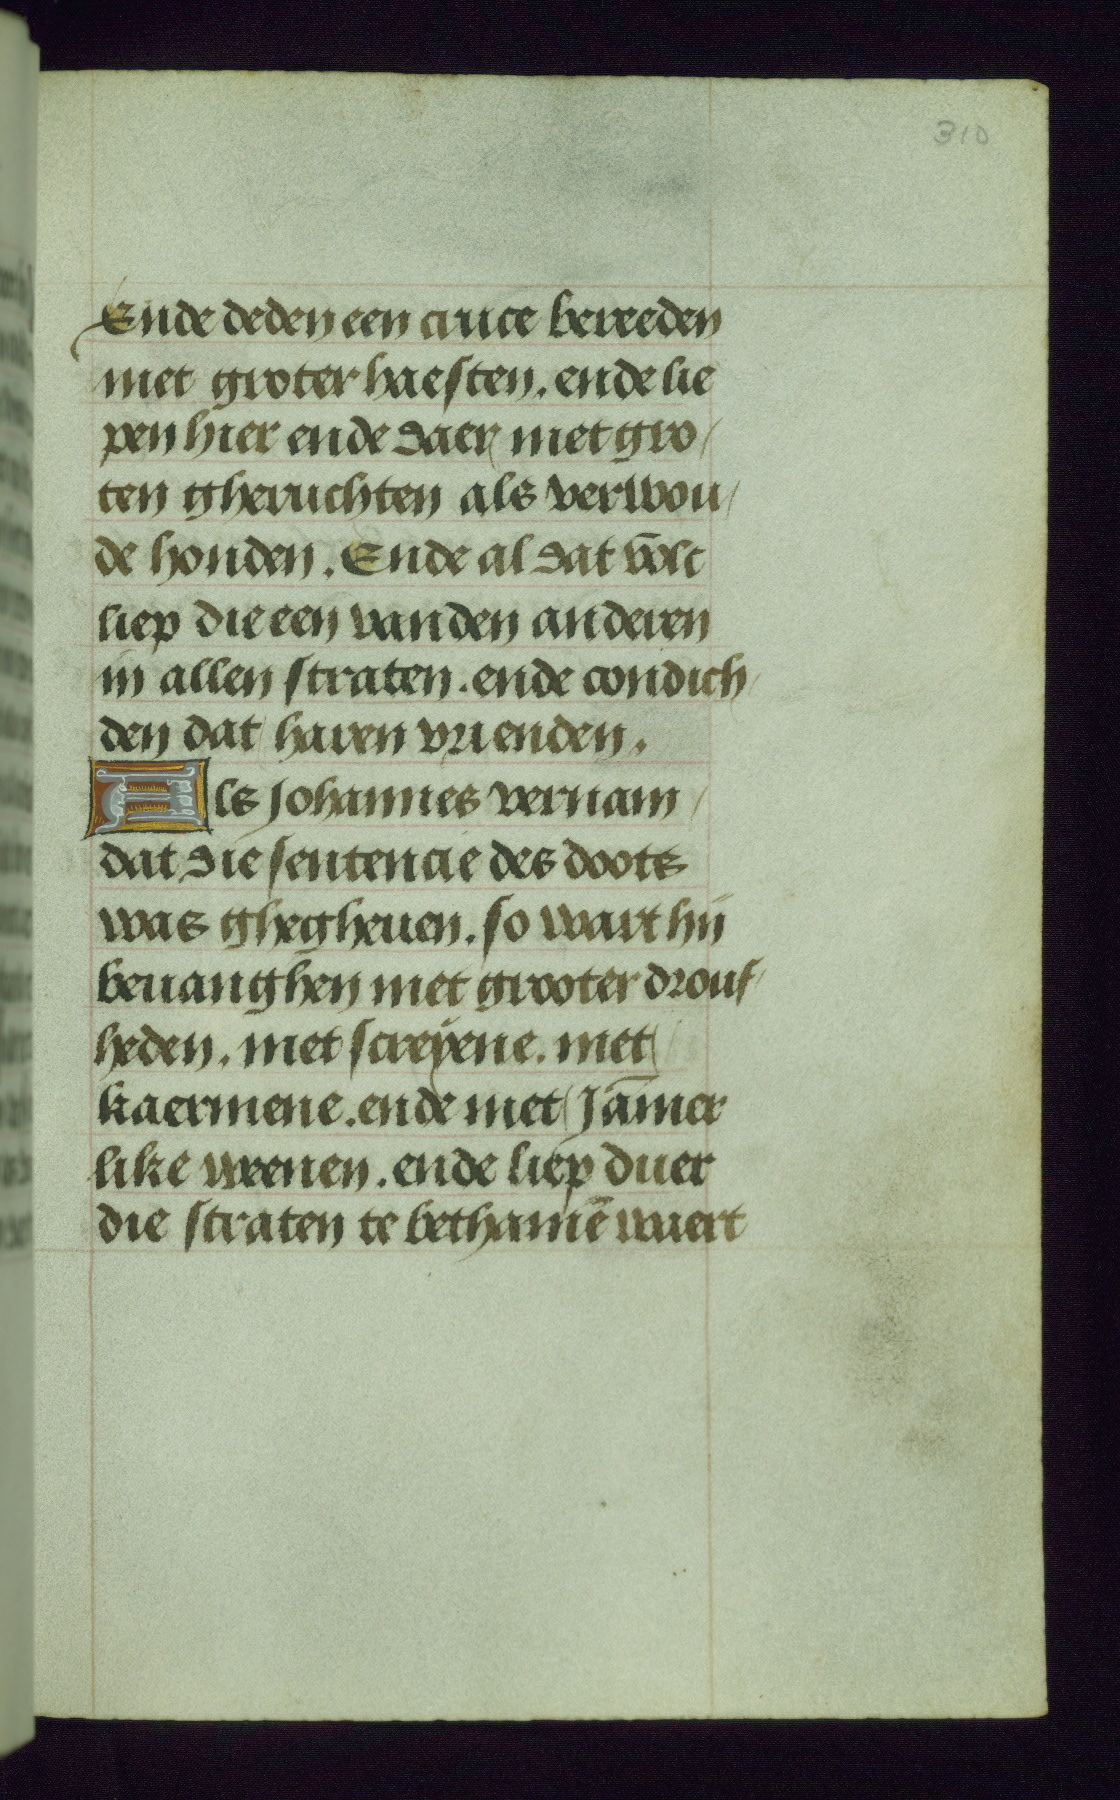 310
Ende deden een cruce bereeden
met groter haesten. ende lie
pen hier ende daer met gro/
ten gheruchten als verwou/
de honden. Ende al dat vōlc
liep die een van den anderen
in allen straten. ende condich/
den dat haren vrienden.
Als Johannes vernam/
dat die sentencie des doots
was ghegheuen. so wart hij
beuanghen met grooter drouf/
heden. met screyene. met
kaermene. ende met Jāmer
like weenen. ende liep duer
die straten te bethaniē waert